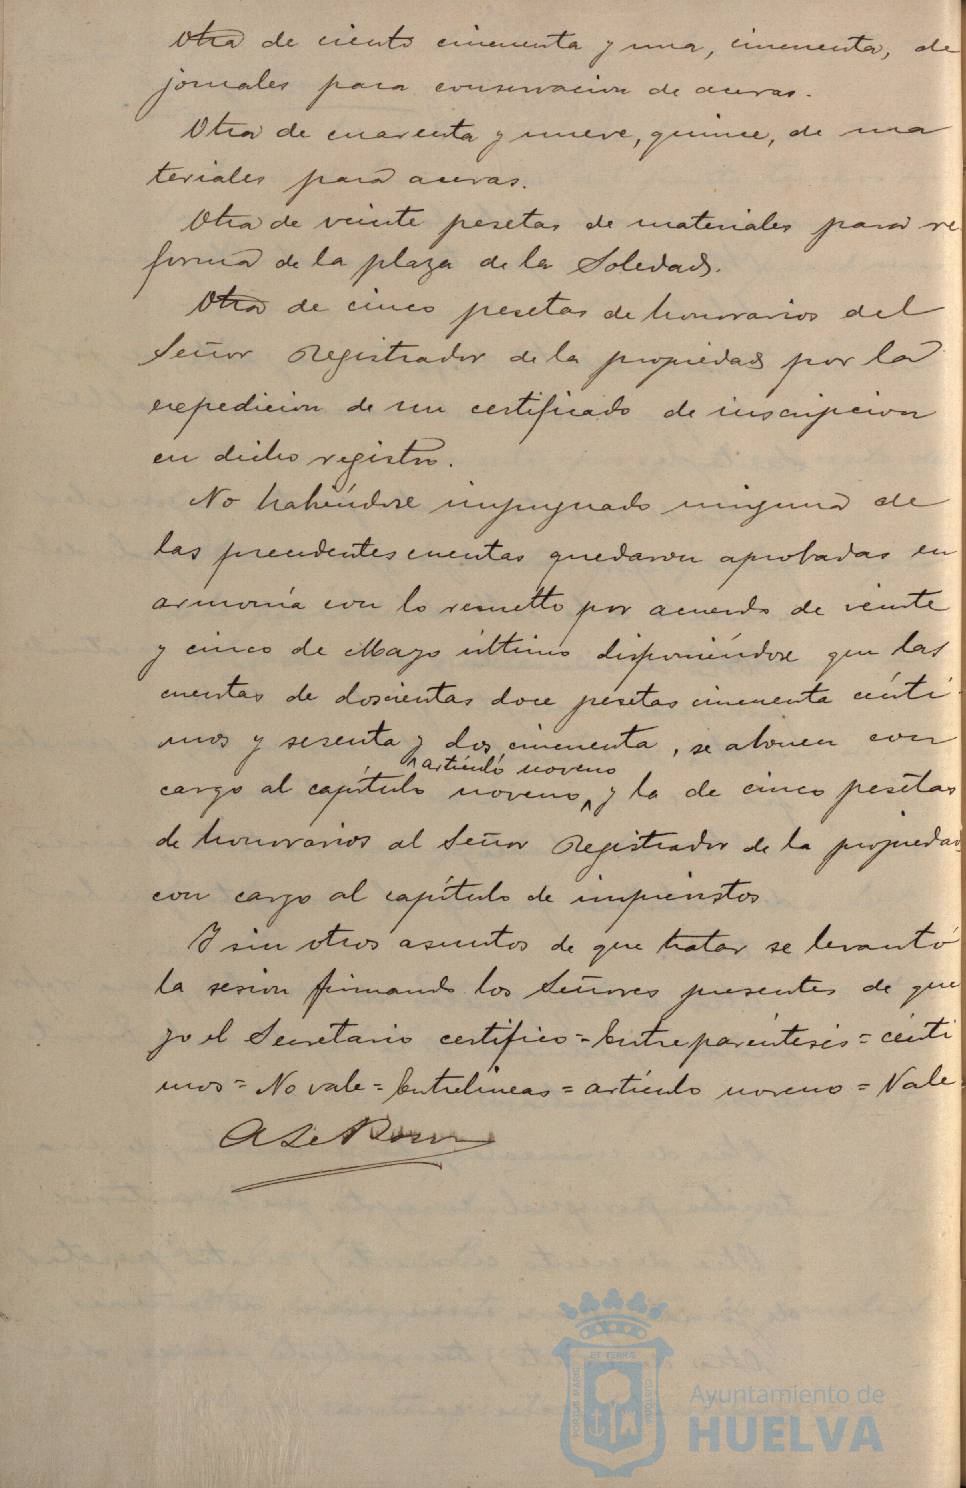 Otra de ciento cincuenta y una, cincuenta, de
jornales para conservacion de aceras.
Otra de cuarenta y nueve, quince, de ma
teriales para aceras.
Otra de veinte pesetas de materiales para re
forma de la plaza de la Soledad.
Otra de cinco pesetas de honorarios del
Señor Registrador de la propiedad por la
expedicion de un certificado de inscripcion
en dicho registro.
No habiéndose impugnado ninguna de
las precedentes cuentas quedaron aprobadas en
armonía con lo resuelto por acuerdo de veinte
y cinco de Mayo último disponiéndose que las
cuentas de doscientas doce pesetas cincuenta cénti
mos y sesenta y dos, cincuenta, se abonen con
artículo noveno
cargo al capítulo noveno, y la de cinco pesetas
de honorarios al Señor Registrador de la propiedad
con cargo al capítulo de imprevistos
Y sin otros asuntos de que tratar se levantó
la sesion firmando los Señores presentes de que
yo el Secretario certifico = Entre paréntesis = cénti
mos = No vale = Entrelineas = artículo noveno = Vale
Ayuntamiento de
HUELVA
PORTUS MARIS
ET TERRÆ
CUSTODIA